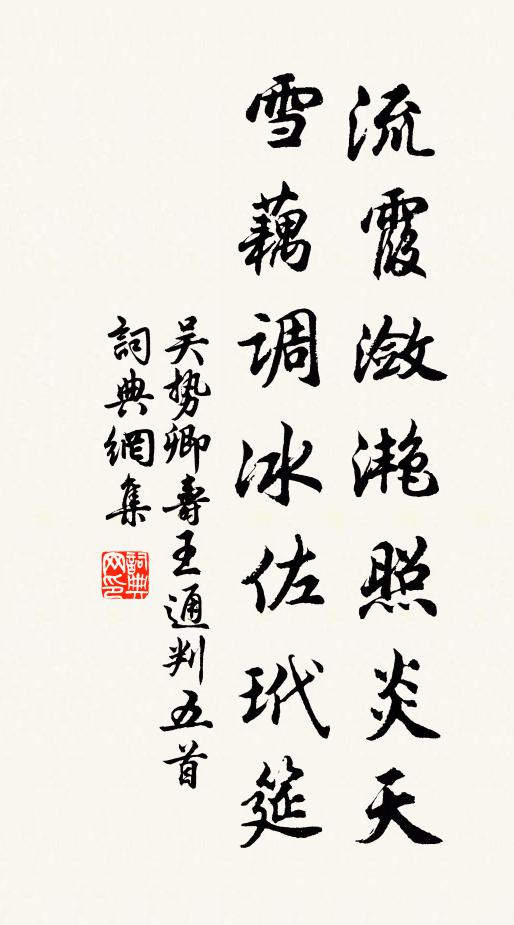 流霞潋滟照炎天
雪藕调冰佐玳筵
吴势卿寿王通判五首
詞典網集
詞典网印